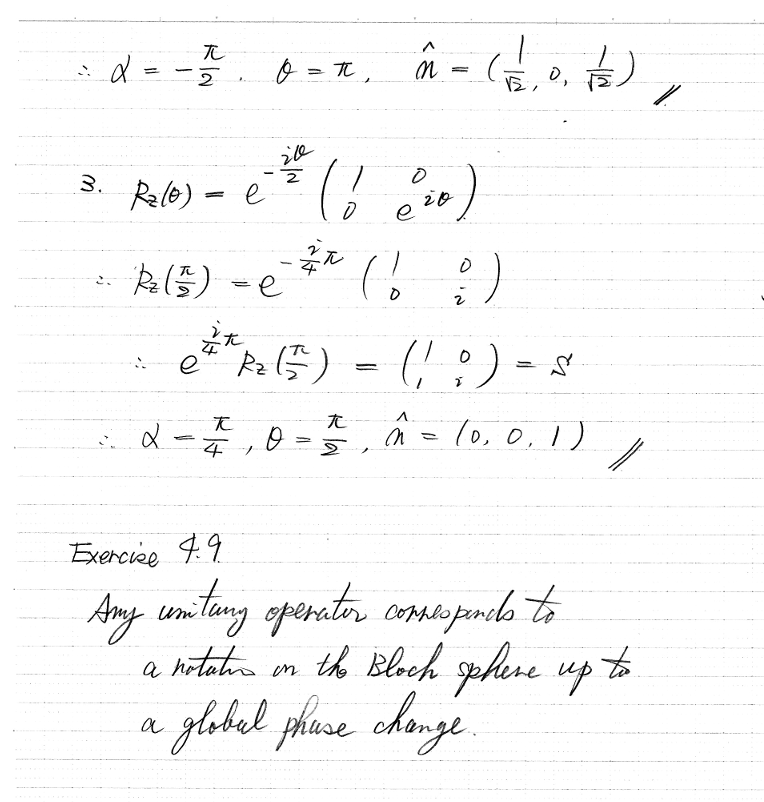 ∴ α = -π/2. θ = π, n̂ = (1/√2, 0, 1/√2) //
3. Rz(θ) = e^(-iθ/2) (1 0 / 0 e^(iθ))
∴ Rz(π/2) = e^(-i/4 π) (1 0 / 0 i)
∴ e^(i/4 π) Rz(π/2) = (1 0 / 1 i) = S
∴ α = π/4, θ = π/2, n̂ = (0, 0, 1) //
Exercise 4.9
Any unitary operator corresponds to
a rotation on the Bloch sphere up to
a global phase change.